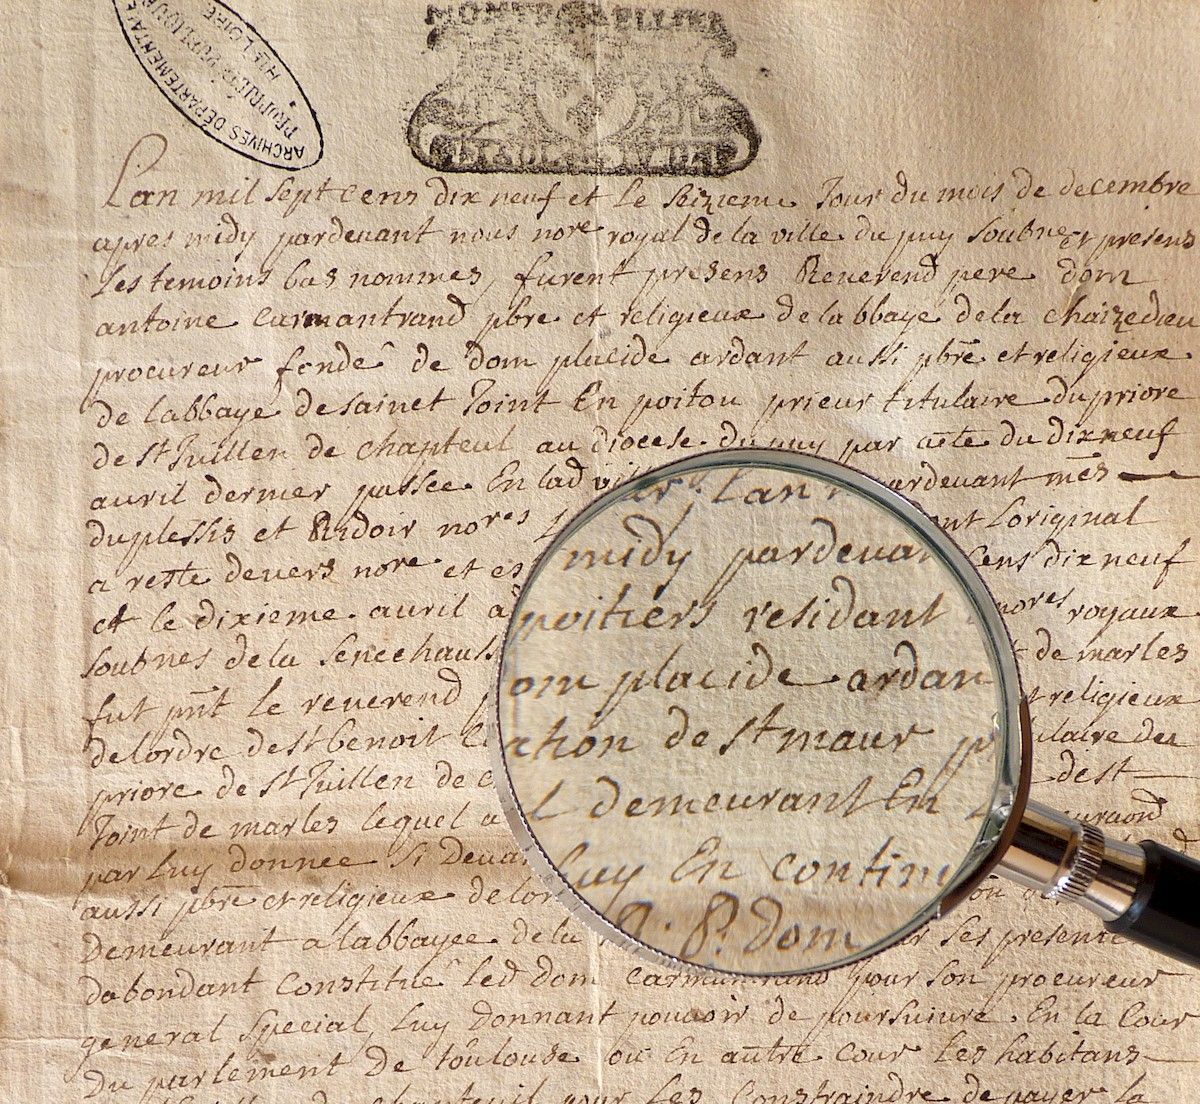 ARCHIVES DÉPARTEMENTALES
PROPRIÉTÉ PUBLIQUE
Hte LOIRE
MONTPELLIER
Lan mil sept cens dix neuf et le seizieme Jour du mois de decembre
apres midy pardevant nous nore royal de la ville du puy soubne et presens
Les temoins bas nommes, furent presens Reverend pere dom
antoine carmantrand pbre et religieux de labbaye de la chaizedieu
procureur fondé de dom placide ardant aussi pbre et religieux
de labbaye de sainct Joint En poitou prieur titulaire du prioré
de st Juillen de chapteul au diocese du puy par acte du dixneuf
avril dernier passée En lad pardevant mes
duplessis et Ridoir nores Loriginal
a resté devers nore et es cens dix neuf
et le dixieme avril nores royaux
soubnes de la senechauss de marles
fut pnt le reverend religieux
de lordre de st benoit titulaire du
prioré de st Juillen de de st
Joint de marles lequel a
par Luy donnee si devan
aussi pbre et religieux de lor
demeurant a labbayee de la ses presente
dabondant constitué led dom carmantrand pour son procureur
general special, Luy donnant pouvoir de poursuivre En la cour
du parlement de toulouse ou En autre cour Les habitans
chapteuil pour Les constraindre de payer la
Lan
midy pardevan
poitiers residant
om placide ardan
ation de st maur
demeurant En
Luy En contin
P. dom